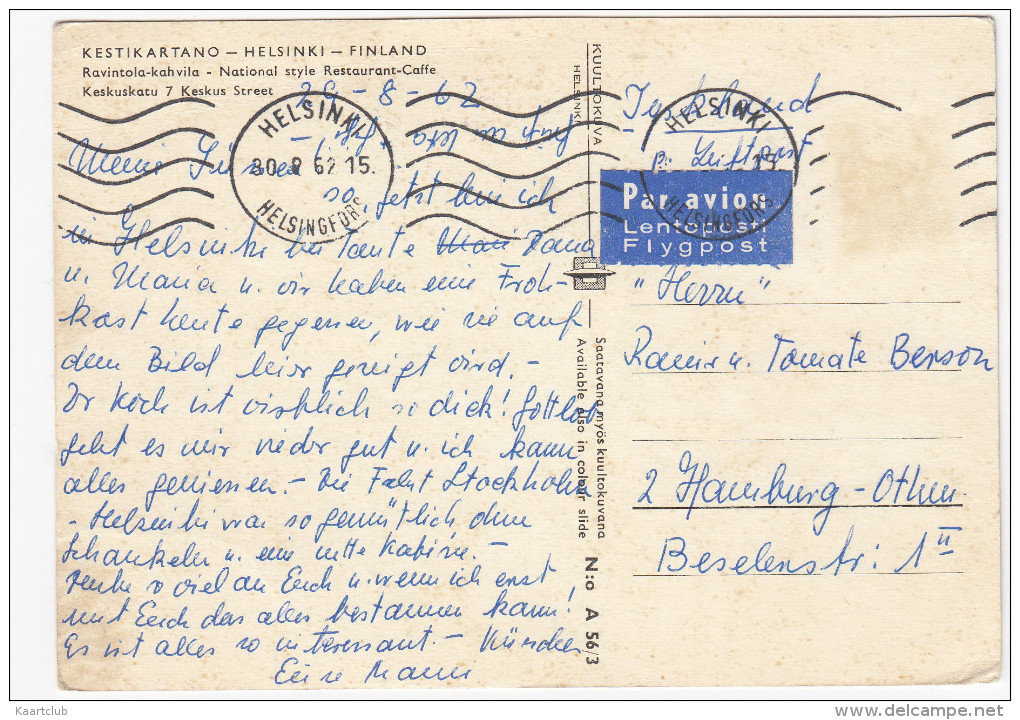 KESTIKARTANO — HELSINKI — FINLAND
Ravintola-kahvila - National style Restaurant-Caffe
Keskuskatu 7 Keskus Street
29-8-62
HELSINKI
30. 8 62 15.
HELSINGFORS
Meine Süssen!
so, jetzt bin ich
in Helsinki bei Tante
u. Maria u. wir haben eine Früh-
kost heute gegessen, wie sie auf
dem Bild hier gezeigt wird. -
Der Koch ist wirklich so dick! Gottlob
geht es mir wieder gut u. ich kann
alles geniessen. - Die Fahrt Stockholm
- Helsinki war so gemütlich, dem
Schaukeln u. eine nette Kabine. -
Denke so viel an Euch u. wenn ich erst
mit Euch das alles bestaunen kann!
Es ist alles so interessant - Küsschen
Eure Mami
KUULTOKUVA
HELSINKI
Saatavana myös kuultokuvana
Available also in colour slide
N:o A 56/3
p. Luftpost
HELSINKI
15.
HELSINGFORS
Par avion
Lentopost
Flygpost
"Herrn"
Ramir u. Tomate Berson
2 Hamburg - Othm.
Beselerstr: 1 II
Kaartclub
www.delcampe.net